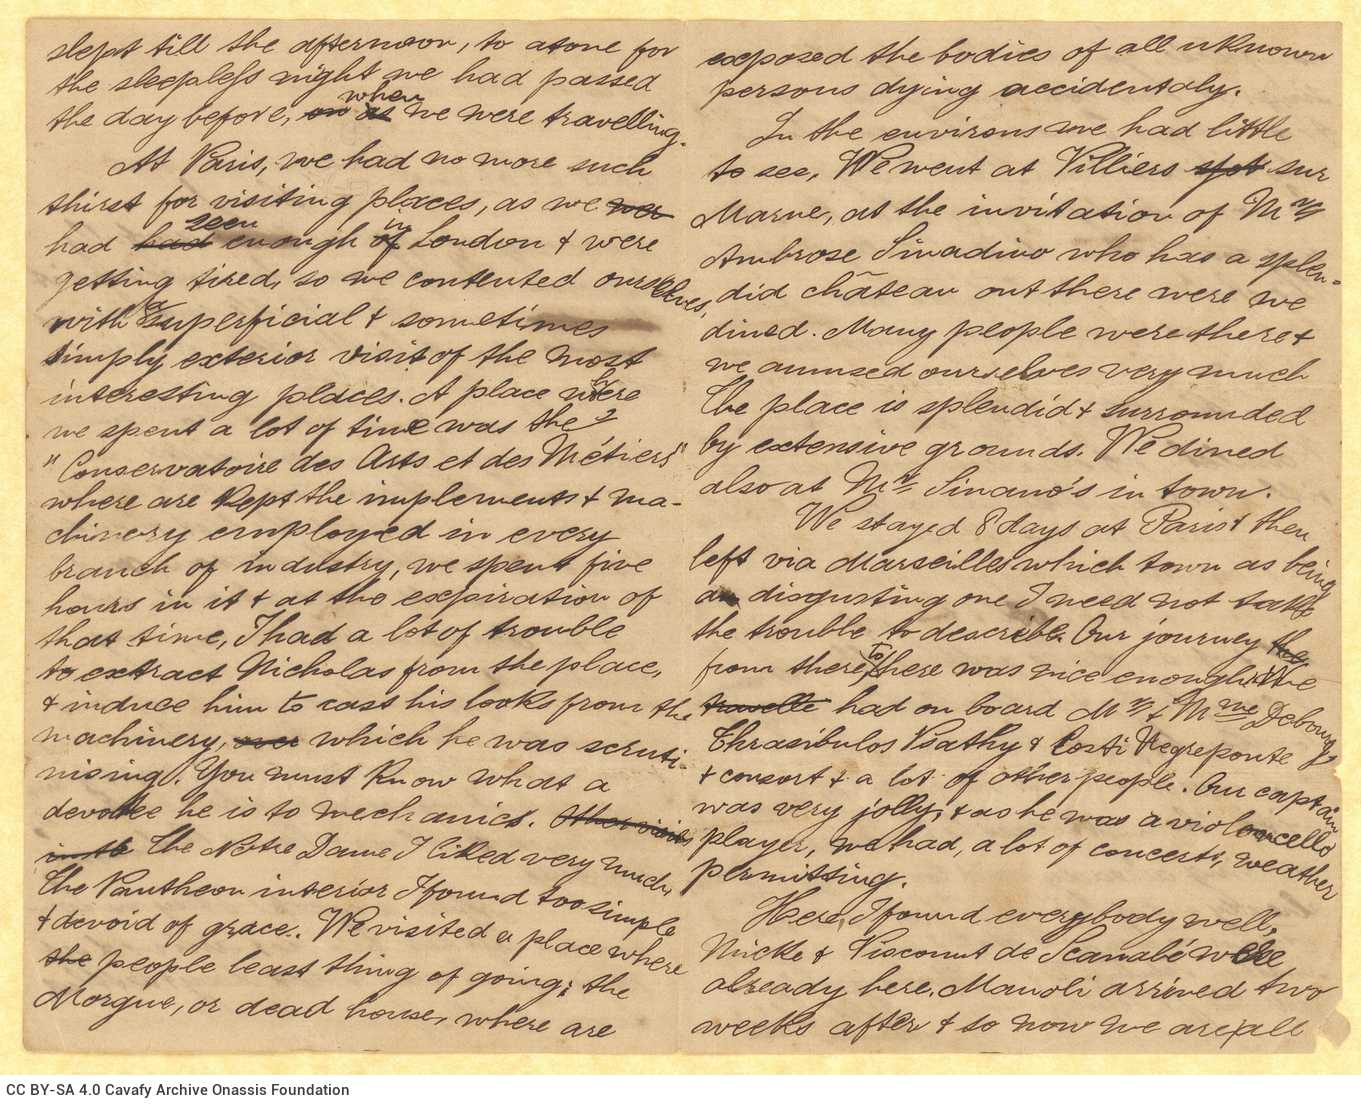 slept till the afternoon, to atone for
the sleepless night we had passed
the day before, on as when we were travelling.
At Paris, we had no more such
thirst for visiting places, as we wer
had had seen enough of in London & were
getting tired, so we contented ourselves,
with a superficial & sometimes
simply exterior visit of the most
interesting places. A place where
we spent a lot of time was the
"Conservatoire des Arts et des Métiers"
where are kept the implements & ma-
chinery employed in every
branch of industry, we spent five
hours in it & at the expiration of
that time, I had a lot of trouble
to extract Nicholas from the place,
& induce him to cast his looks from the
machinery, over which he was scruti-
nising. You must know what a
devotee he is to mechanics. Other visits
in the The Notre Dame I liked very much,
The Pantheon interior I found too simple
& devoid of grace. We visited a place where
the people least thing of going; the
Morgue, or dead house, where are
exposed the bodies of all unknown
persons dying accidentaly.
In the environs we had little
to see, We went at Villiers sur
Marne, at the invitation of Mrs
Ambrose Sinadino who has a splen-
did château out there were we
dined. Many people were there &
we amused ourselves very much
The place is splendid & surrounded
by extensive grounds. We dined
also at Mrs Sinano's in town.
We stayed 8 days at Paris & then
left via Marseilles which town as being
a disgusting one I need not take
the trouble to describe. Our journey the
from there to here was nice enough. We
travelle had on board Mr & Mme Debourg
Thrasibulos Psathy & Costi Negreponte
& consort & a lot of other people. Our captain
was very jolly, & as he was a violoncello
player, we had, a lot of concerts, weather
permitting.
Here, I found everybody well,
Nicke & Viscount de Scanabé were
already here. Manoli arrived two
weeks after & so now we are all
CC BY-SA 4.0 Cavafy Archive Onassis Foundation